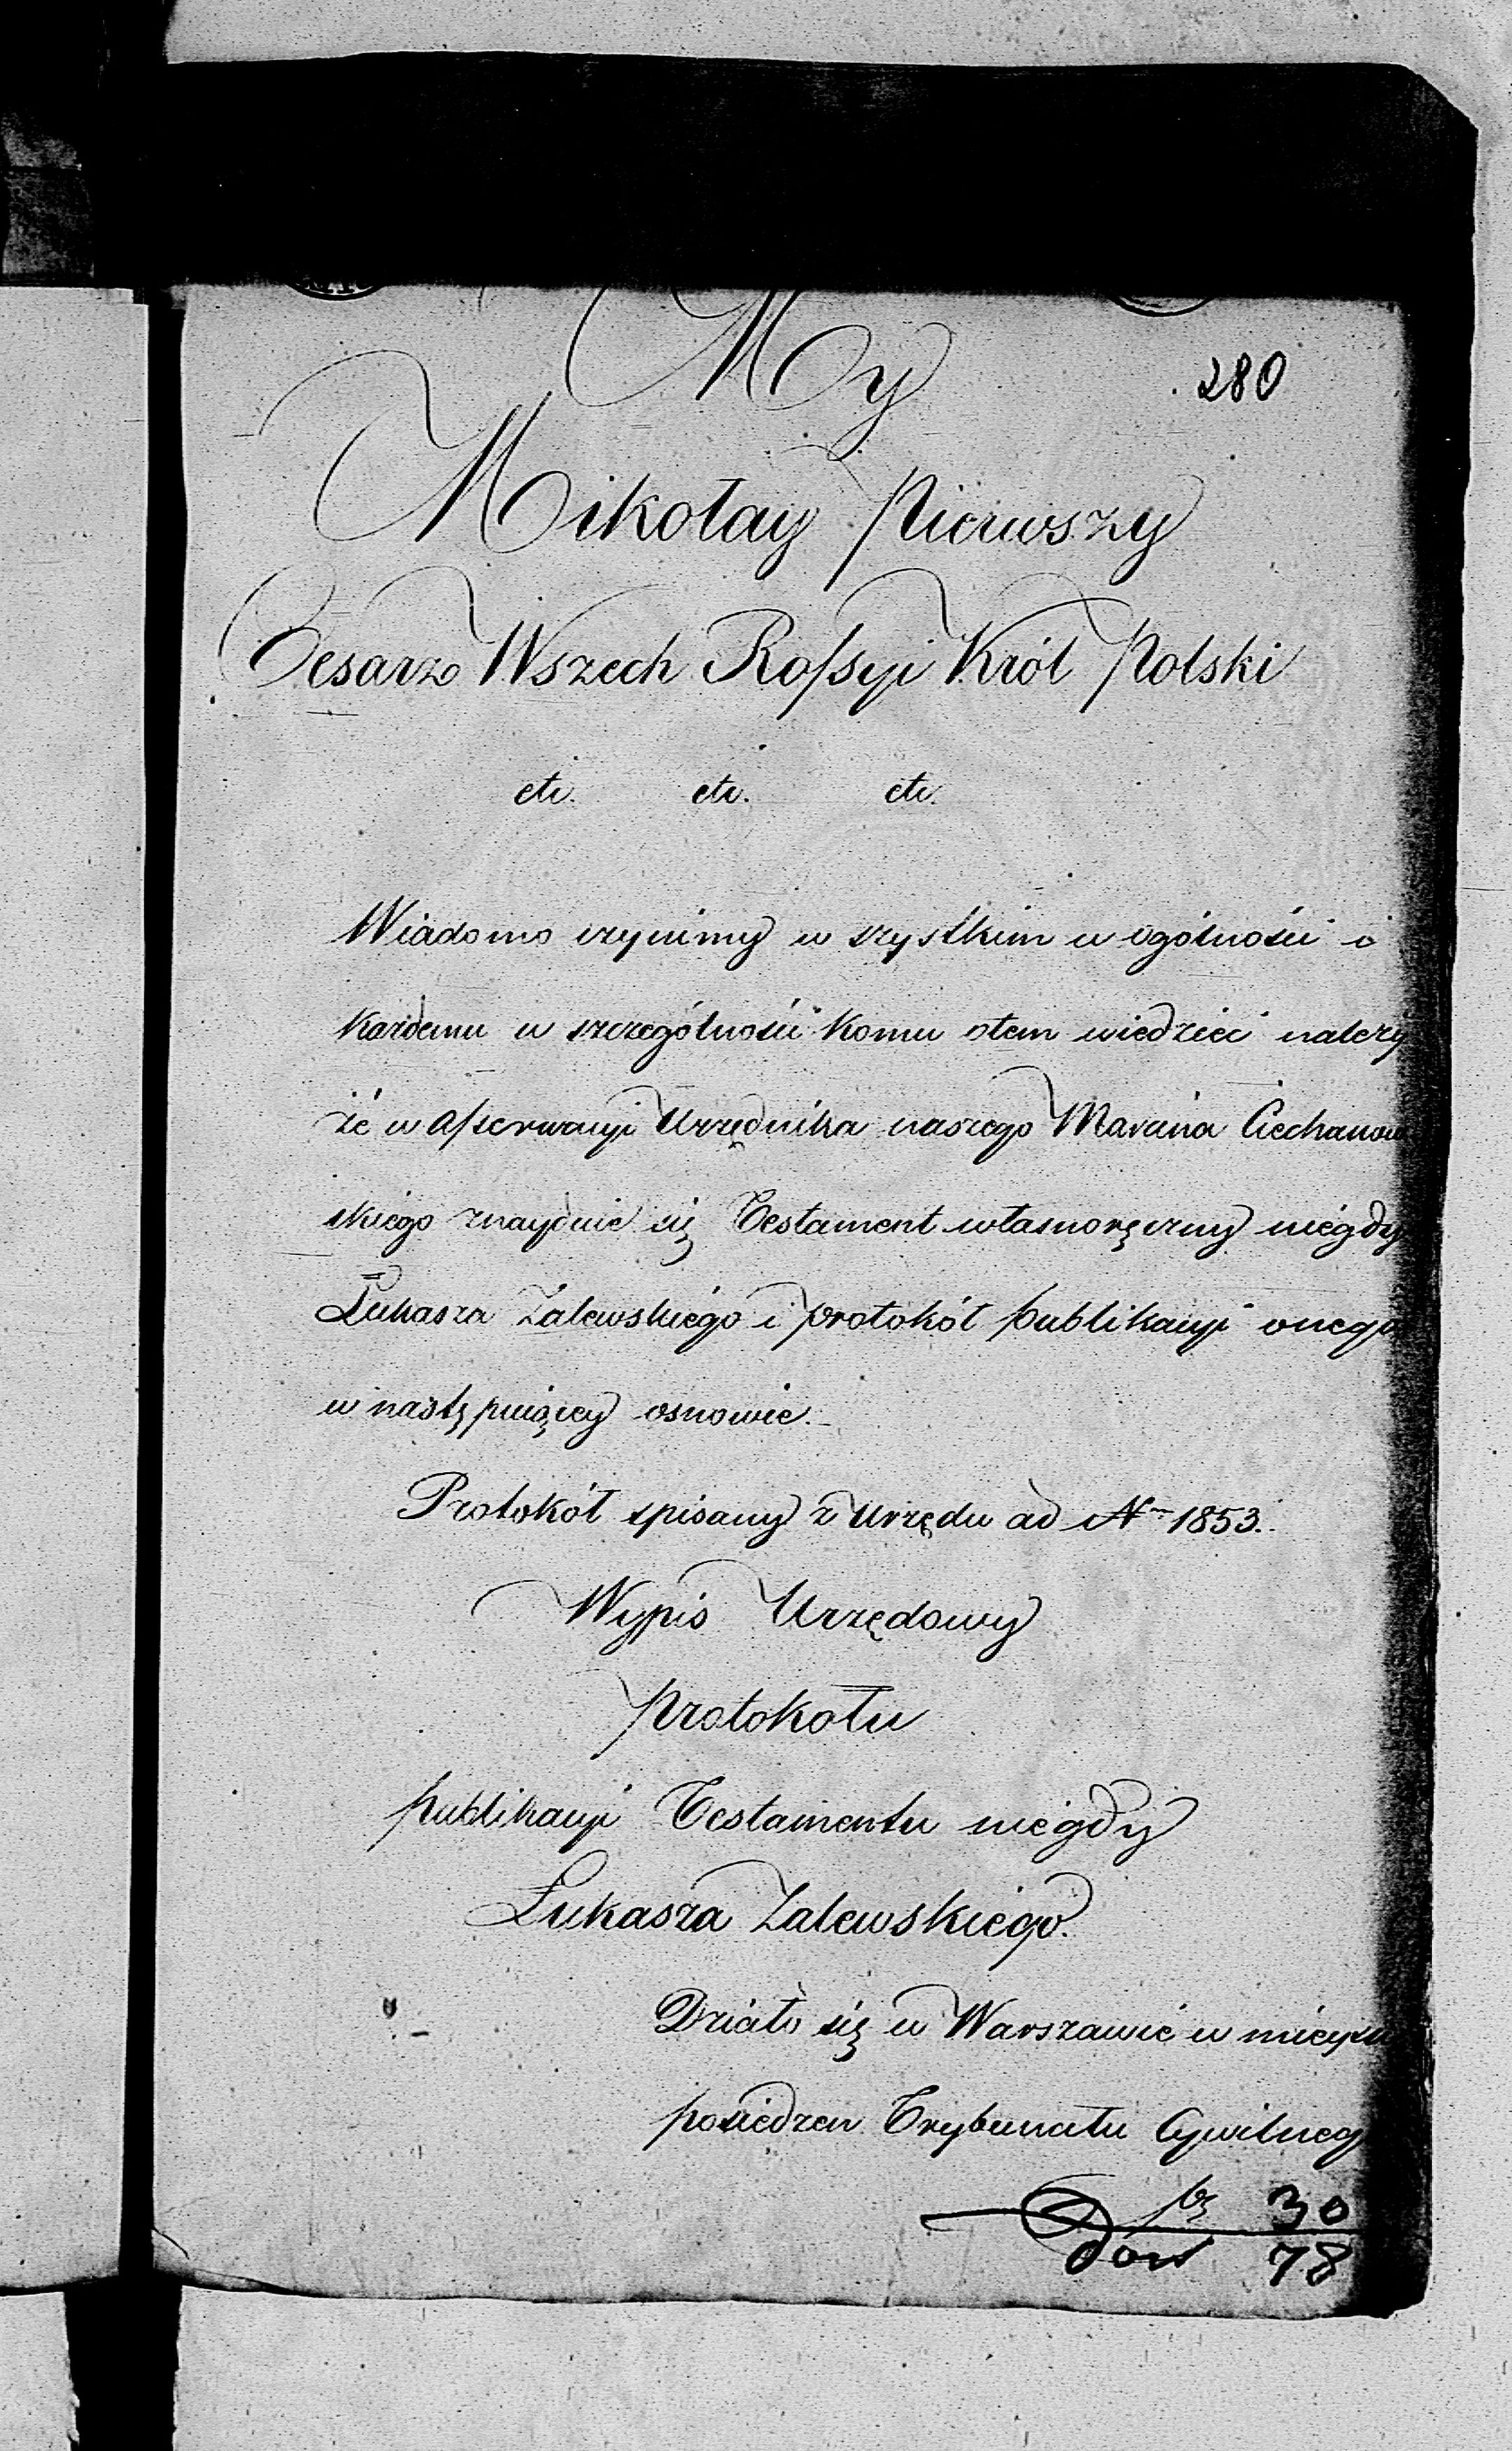 My
280
Mikołay Pierwszy
Cesarz Wszech Rossyi Król Polski
etc. etc. etc.
Wiadomo czynimy wszystkim w ogólności i
każdemu w szczególności komu otem wiedzieć należy
że w asserwacyi Urzędnika naszego Marcina Ciechanow
skiego znayduie się Testament własnoręczny niegdy
Łukasza Zalewskiego i protokół publikacyi onego
w następuiącey osnowie.
Protokół spisany z Urzędu ad Nm 1853.
Wypis Urzędowy
protokołu
publikacyi Testamentu niegdy
Łukasza Zalewskiego.
Działo się w Warszawie w mieyscu
posiedzeń Trybunału Cywilneg
30
Dow 78